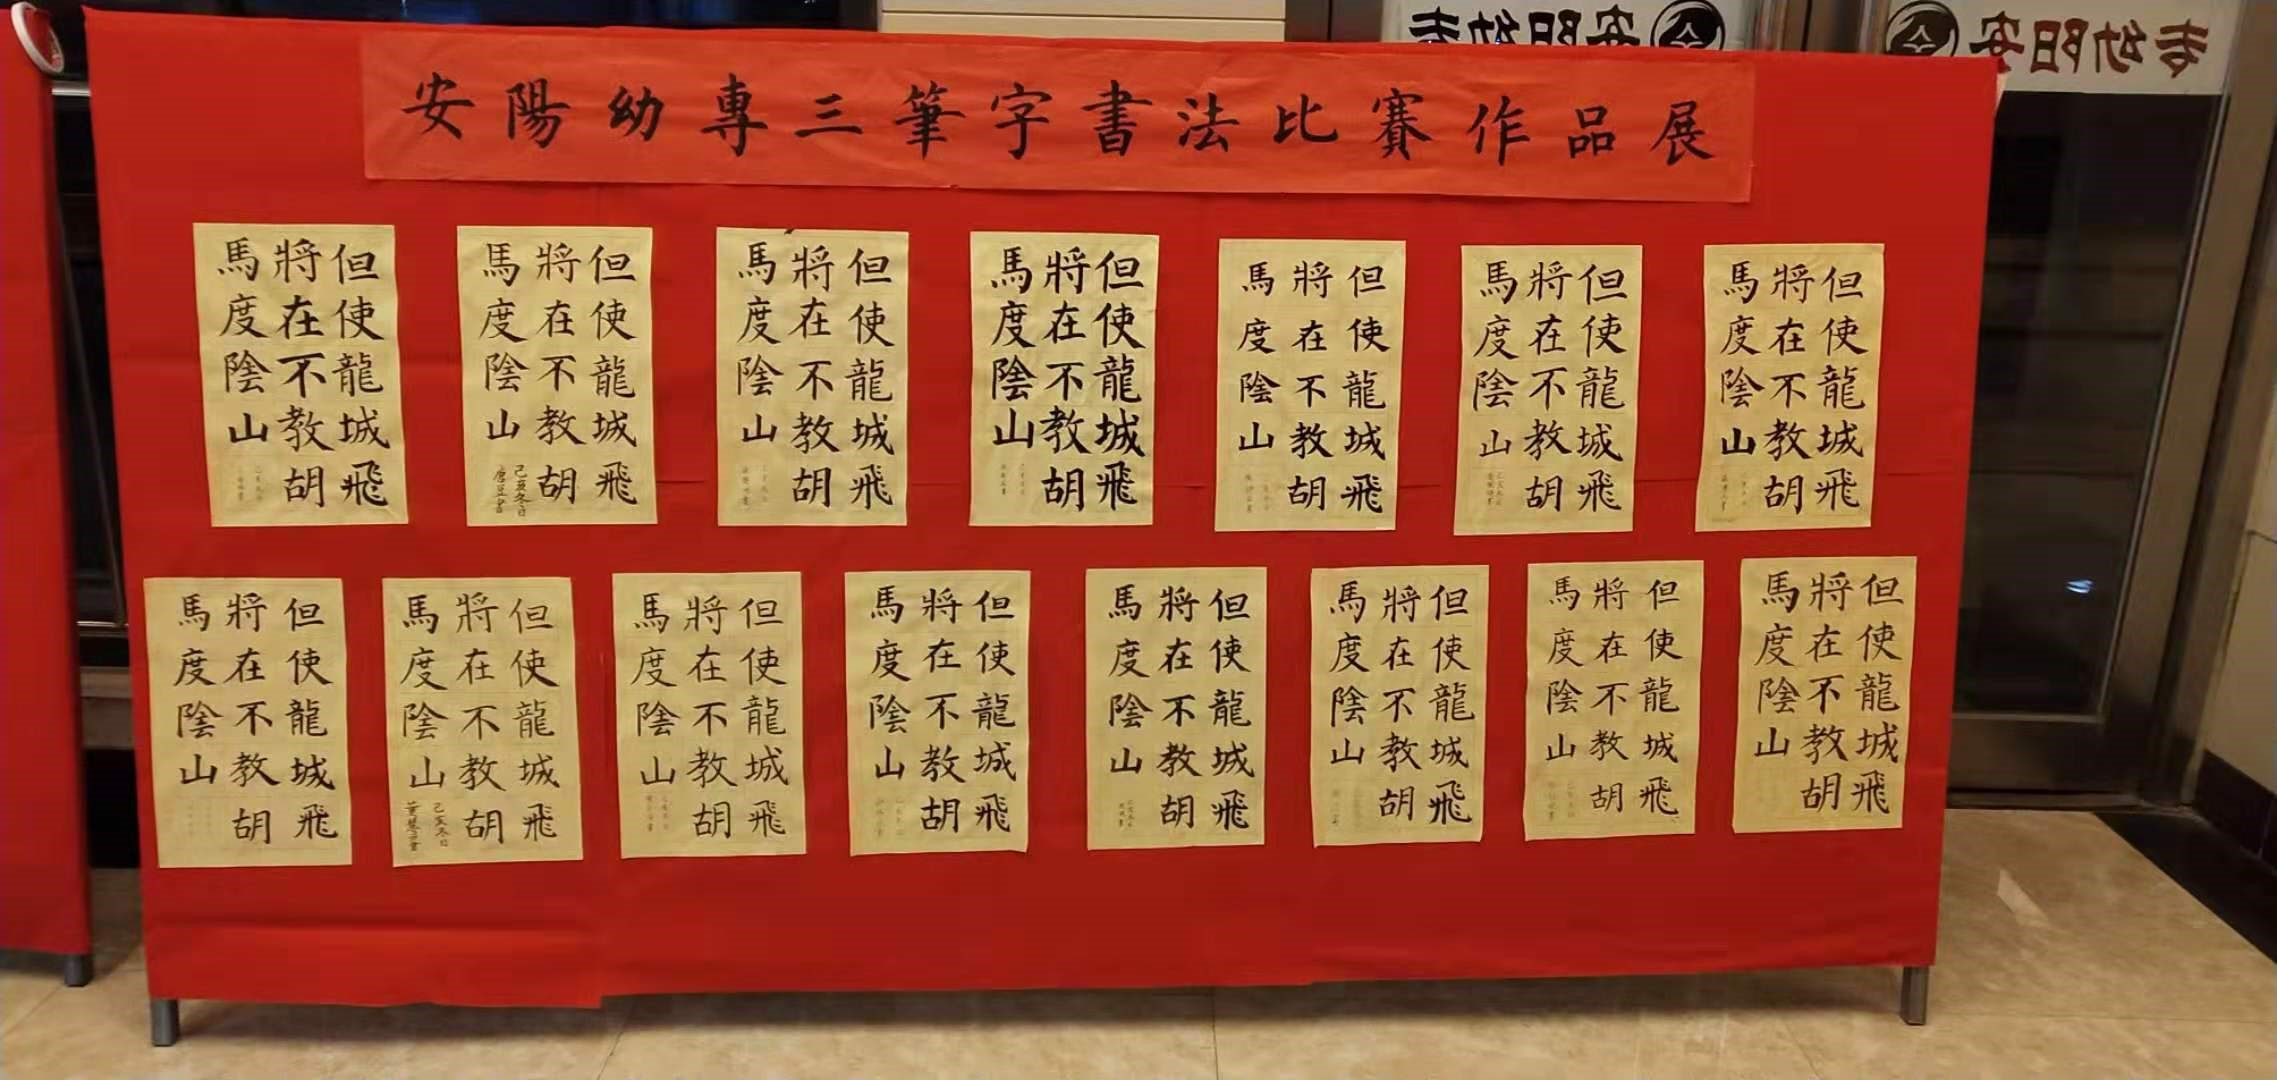 安阳幼专
安阳幼专
安陽幼專三筆字書法比賽作品展
但使龍城飛
將在不教胡
馬度陰山
但使龍城飛
將在不教胡
馬度陰山
己亥冬日
唐豆書
但使龍城飛
將在不教胡
馬度陰山
但使龍城飛
將在不教胡
馬度陰山
但使龍城飛
將在不教胡
馬度陰山
但使龍城飛
將在不教胡
馬度陰山
但使龍城飛
將在不教胡
馬度陰山
但使龍城飛
將在不教胡
馬度陰山
但使龍城飛
將在不教胡
馬度陰山
己亥冬日
但使龍城飛
將在不教胡
馬度陰山
但使龍城飛
將在不教胡
馬度陰山
但使龍城飛
將在不教胡
馬度陰山
但使龍城飛
將在不教胡
馬度陰山
但使龍城飛
將在不教胡
馬度陰山
但使龍城飛
將在不教胡
馬度陰山